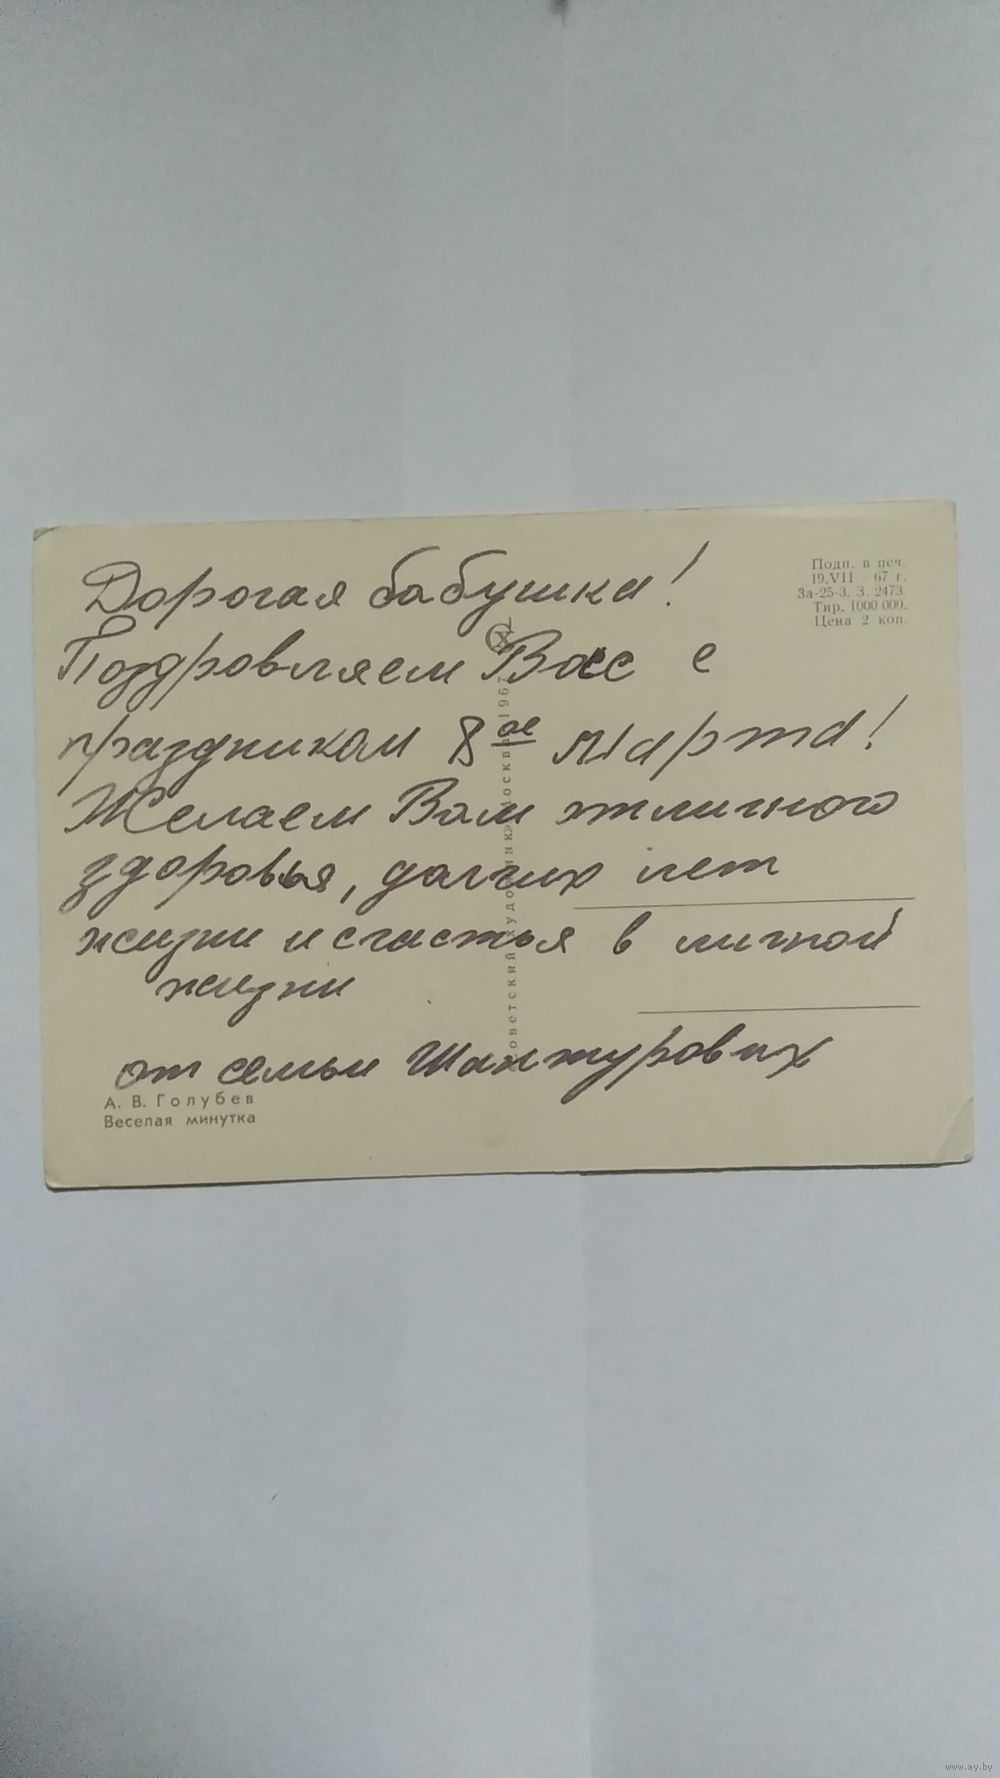 Дорогая бабушка!
Поздровляем Вас с
праздником 8ое Марта!
Желаем Вам отличного
здоровья, долгих лет
жизни и счастья в личной
жизни
от семьи Шантуровых
Подп. в печ.
19.VII - 67 г.
За-25-3. З. 2473.
Тир. 1000 000.
Цена 2 коп.
Советский художник Москва 1967
А. В. Голубев
Веселая минутка
www.ay.by